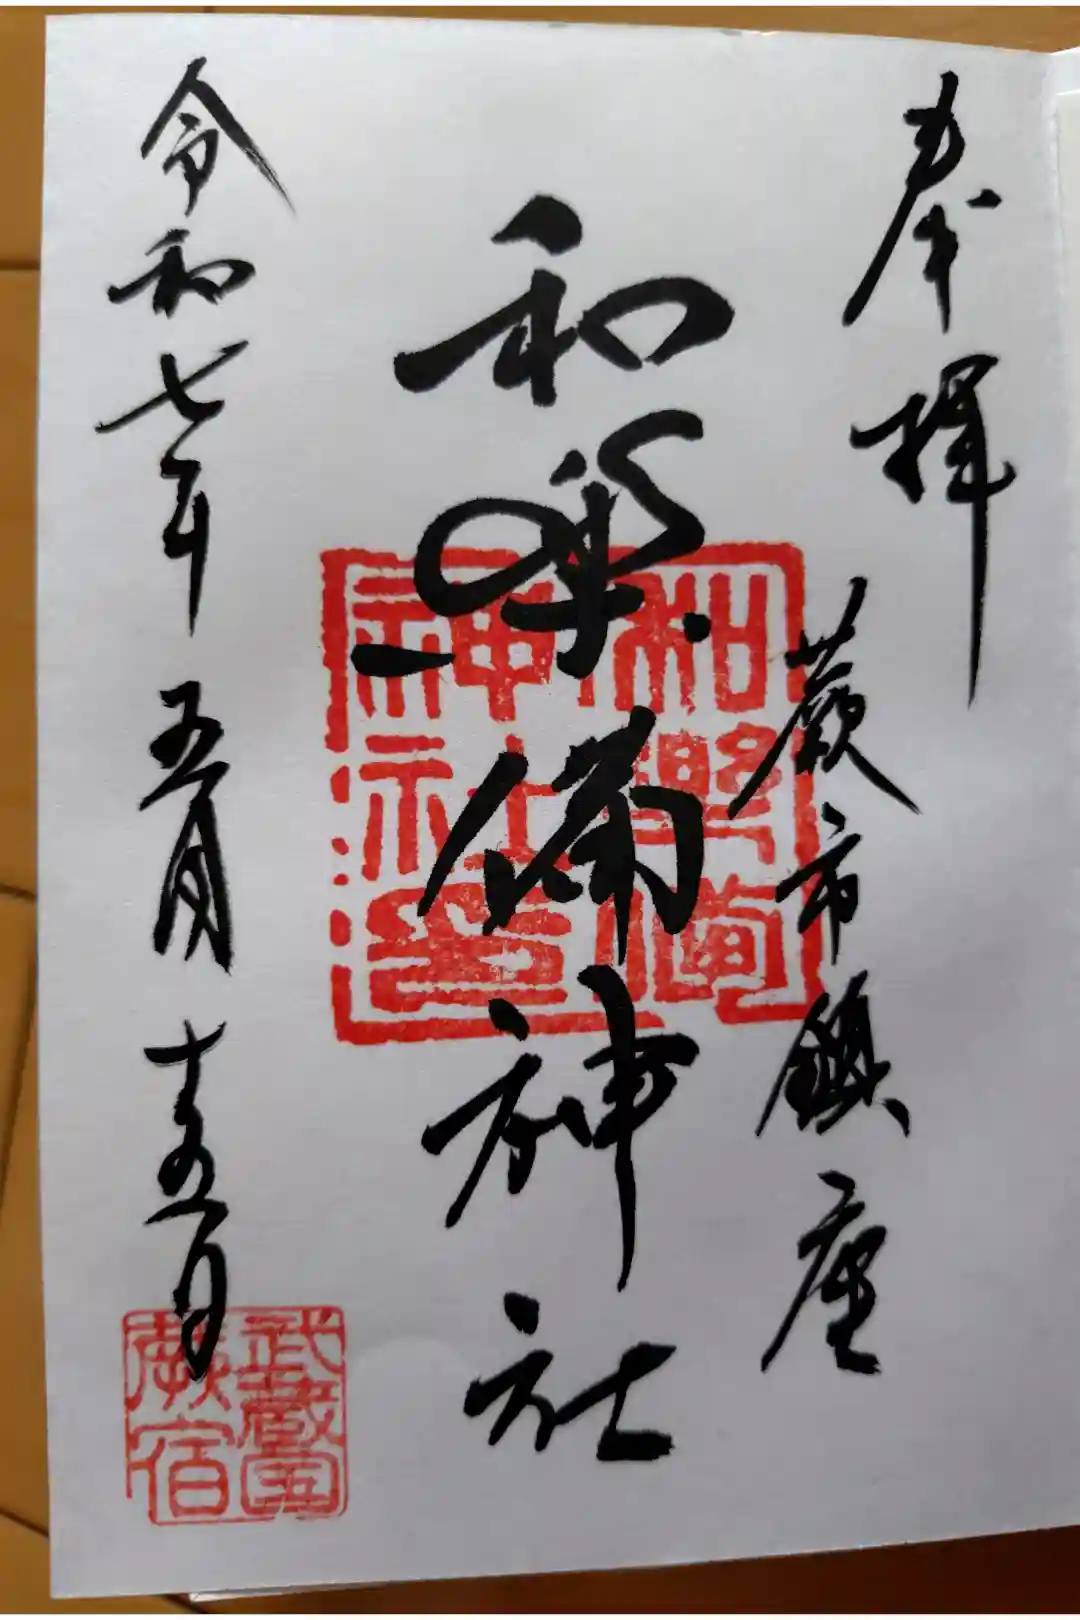 奉拝
蕨市鎮座
和樂備神社
令和七年五月十五日
和樂備
神社印
武蔵国
蕨宿